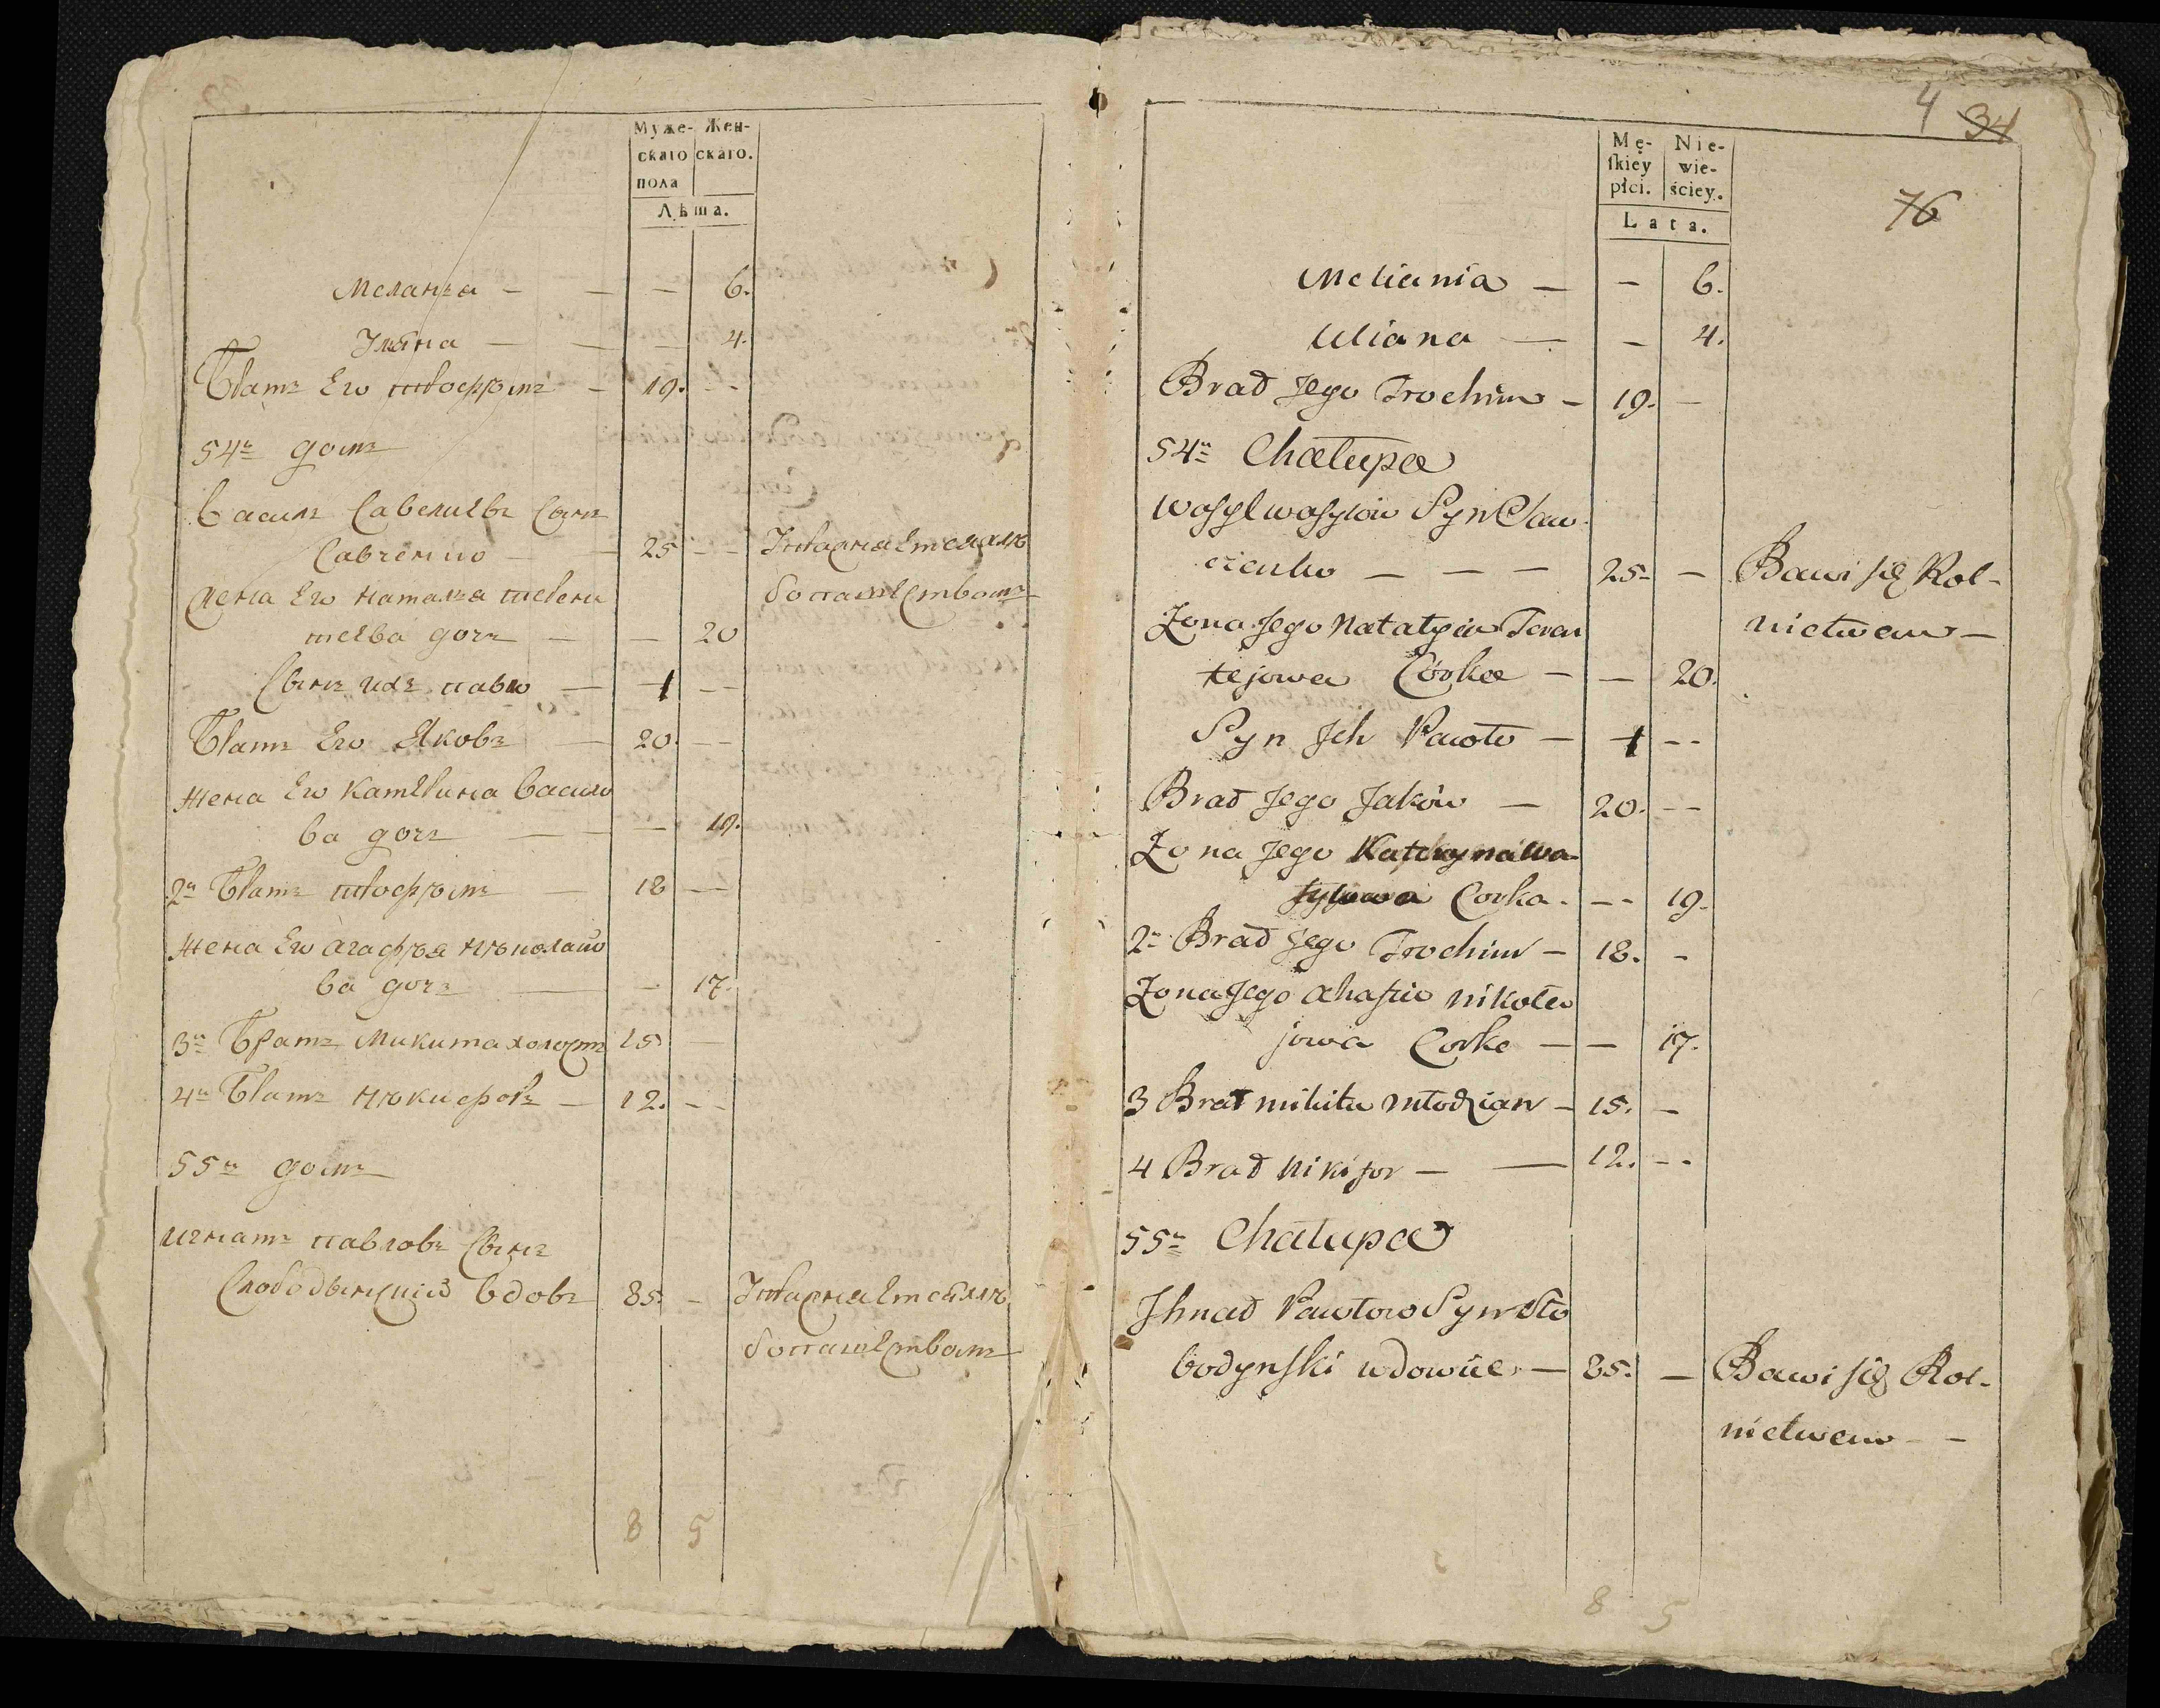 Муже- Жен-
скаго скаго.
пола
Лѣта.
Меланъя — — — 6.
Уляна — — — 4.
Братъ Его трофымъ — 19. --
54й домъ
Василъ Савелиевъ Сынъ
Савченко — — 25 -- Упражняется хле
бопашествомъ
Жена Его наталъя терен
теева дочъ — — 20
Сынъ ихъ павло — 1 --
Братъ Его Яковъ — 20. --
Жена Его Катерина Васило
ва дочъ — — — 19.
2й Братъ трофымъ — 18 —
Жена Его агафъя николаио
ва дочъ — — 17.
3й Братъ Микита холостъ 15 —
4й Братъ никифоръ — 12. --
55й домъ
игнатъ павловъ Сынъ
Слободынский Вдовъ 85. - Упражняется хле
бопашествомъ
8 5
4 34
76
Mę- Nie-
skiey wie-
płci. ściey.
Lata.
Meliania — — 6.
Uliana — — 4.
Brad Jego Trochim — 19. —
54ta Chałupa
Wasyl Wasylow Syn Saw-
czenko — — — 25. — Bawi się Rol-
nictwem —
Zona Jego Natalya Teren
tejowa Corka — — 20.
Syn Jch Pawło — 1 --
Brad Jego Jaków — 20. --
Zona Jego Katerynawa
sylowa Corka. -- 19.
2i Brad Jego Trochim — 18. -
Zona Jego Ahafia nikoła
jowa Corka — — 17.
3 Brat mikita młodzian — 15. —
4 Brad Nikifor — — 12. --
55ta Chałupa
Jhnad Pawłow Syn Sło
bodynski wdowiec — 85. — Bawi się Rol-
nictwem — —
8 5